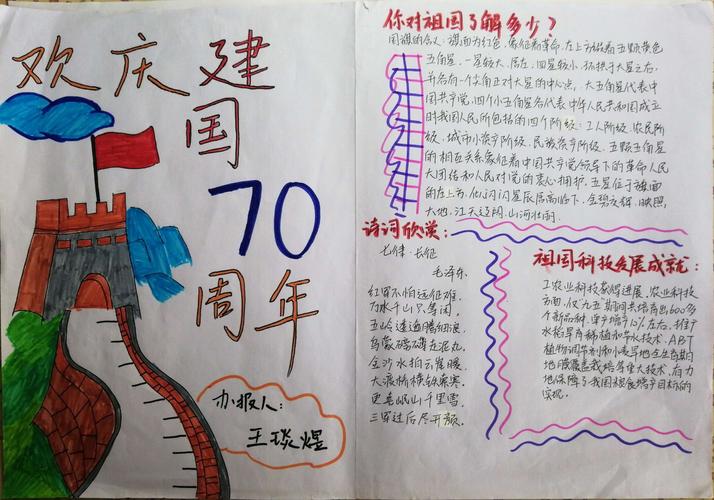 欢庆建
国
70
周年
办报人:
王琰煜
你对祖国了解多少?
国旗的含义:旗面为红色,象征着革命,左上方缀着五颗黄色
五角星,一星较大,居左,四星较小,环拱于大星之右,
并各有一个尖角正对大星的中心点,大五角星代表中
国共产党,四个小五角星各代表中华人民共和国成立
时我国人民所包括的四个阶级:工人阶级、农民阶
级、城市小资产阶级、民族资产阶级。五颗五角星
的相互关系象征着中国共产党领导下的革命人民
大团结和人民对党的衷心拥护,五星位于旗面
的左上方,似闪闪星辰居高临下,金碧之辉,映照
大地,江天辽阔,山河壮丽。
诗词欣赏:
七律·长征
毛泽东
红军不怕远征难,
万水千山只等闲。
五岭逶迤腾细浪,
乌蒙磅礴走泥丸。
金沙水拍云崖暖,
大渡桥横铁索寒。
更喜岷山千里雪,
三军过后尽开颜。
祖国科技发展成就:
工农业科技蒙得进展,农业科技
方面,仅九五期间共培育出600多
个新品种,单产增产15%左右,推广
水稻旱育稀植和节水技术,ABT
植物调节剂和小麦旱地全生育期
地膜覆盖栽培等重大技术,有力
地保障了我国粮食增产目标的
实现。